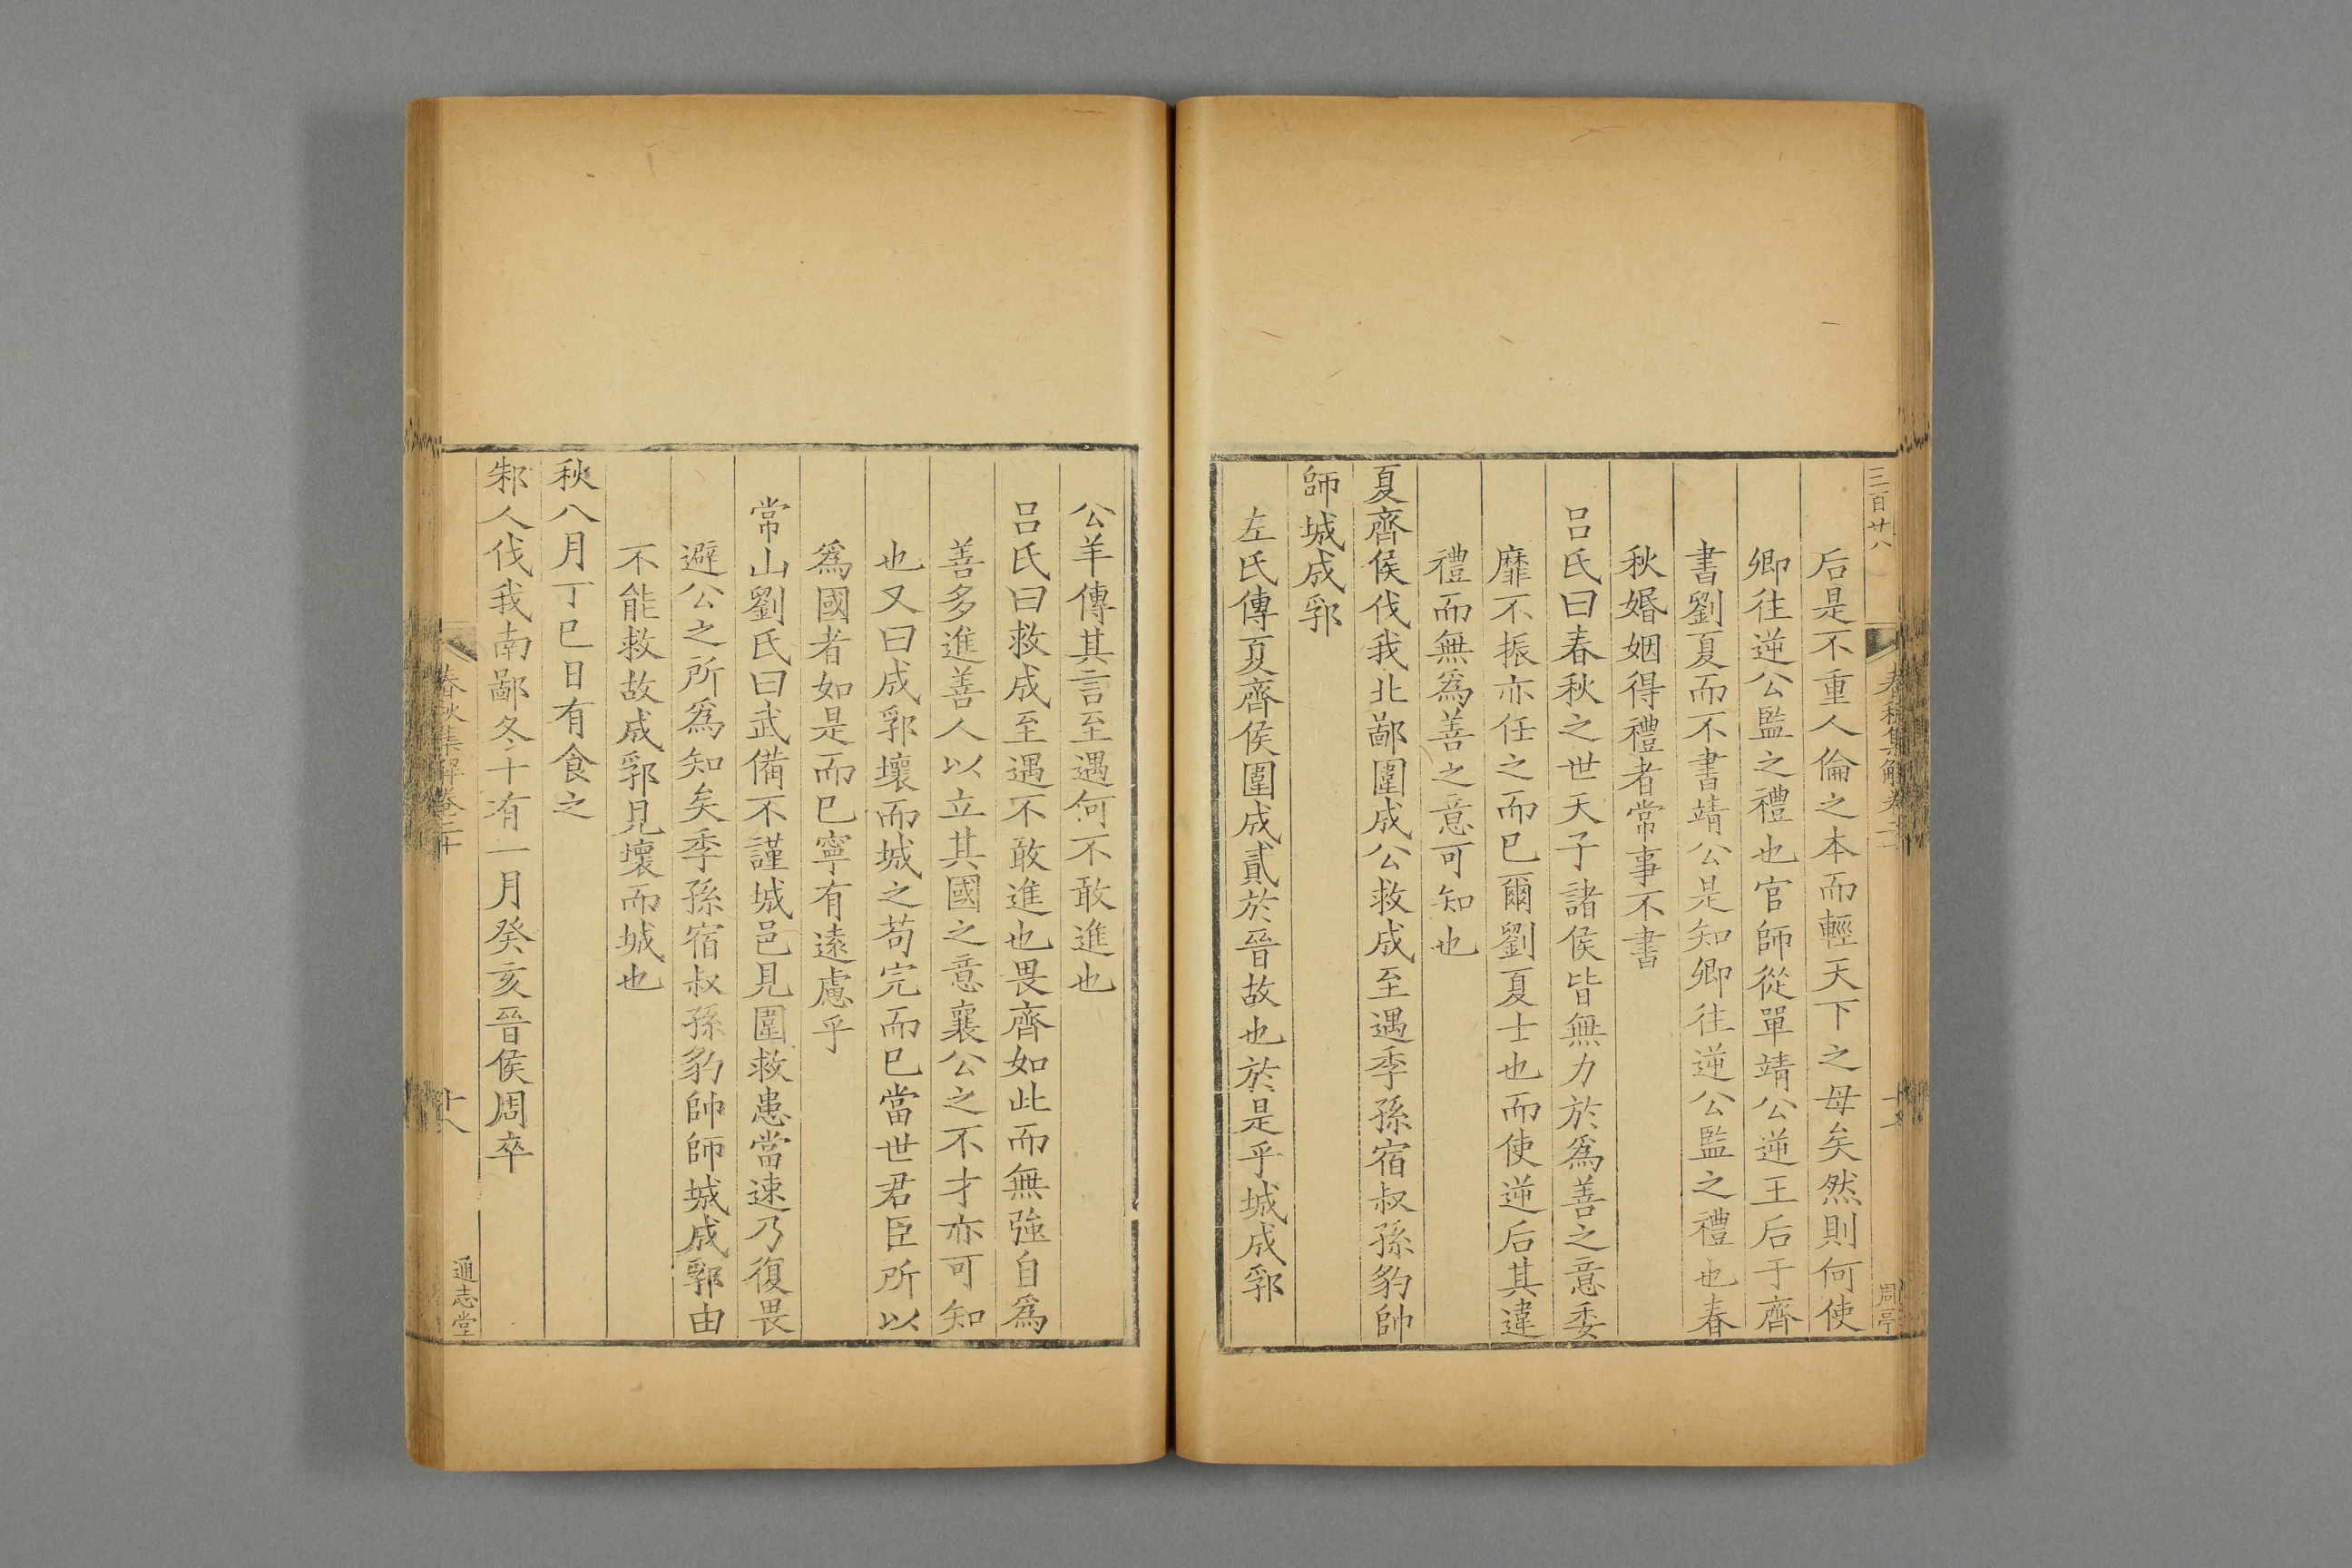 三百廿八
春秋集解卷二十
周亭
后是不重人倫之本而輕天下之母矣然則何使
卿往逆公監之禮也官師從單靖公逆王后于齊
書劉夏而不書靖公是知卿往逆公監之禮也春
秋婚姻得禮者常事不書
呂氏曰春秋之世天子諸侯皆無力於爲善之意委
靡不振亦任之而已爾劉夏士也而使逆后其違
禮而無爲善之意可知也
夏齊侯伐我北鄙圍成公救成至遇季孫宿叔孫豹帥
師城成郛
左氏傳夏齊侯圍成貳於晉故也於是乎城成郛
公羊傳其言至遇何不敢進也
呂氏曰救成至遇不敢進也畏齊如此而無強自爲
善多進善人以立其國之意襄公之不才亦可知
也又曰成郛壞而城之苟完而已當世君臣所以
爲國者如是而已寧有遠慮乎
常山劉氏曰武備不謹城邑見圍救患當速乃復畏
避公之所爲知矣季孫宿叔孫豹帥師城成郛由
不能救故成郛見壞而城也
秋八月丁巳日有食之
邾人伐我南鄙冬十有一月癸亥晉侯周卒
春秋集解卷二十
廿八
通志堂